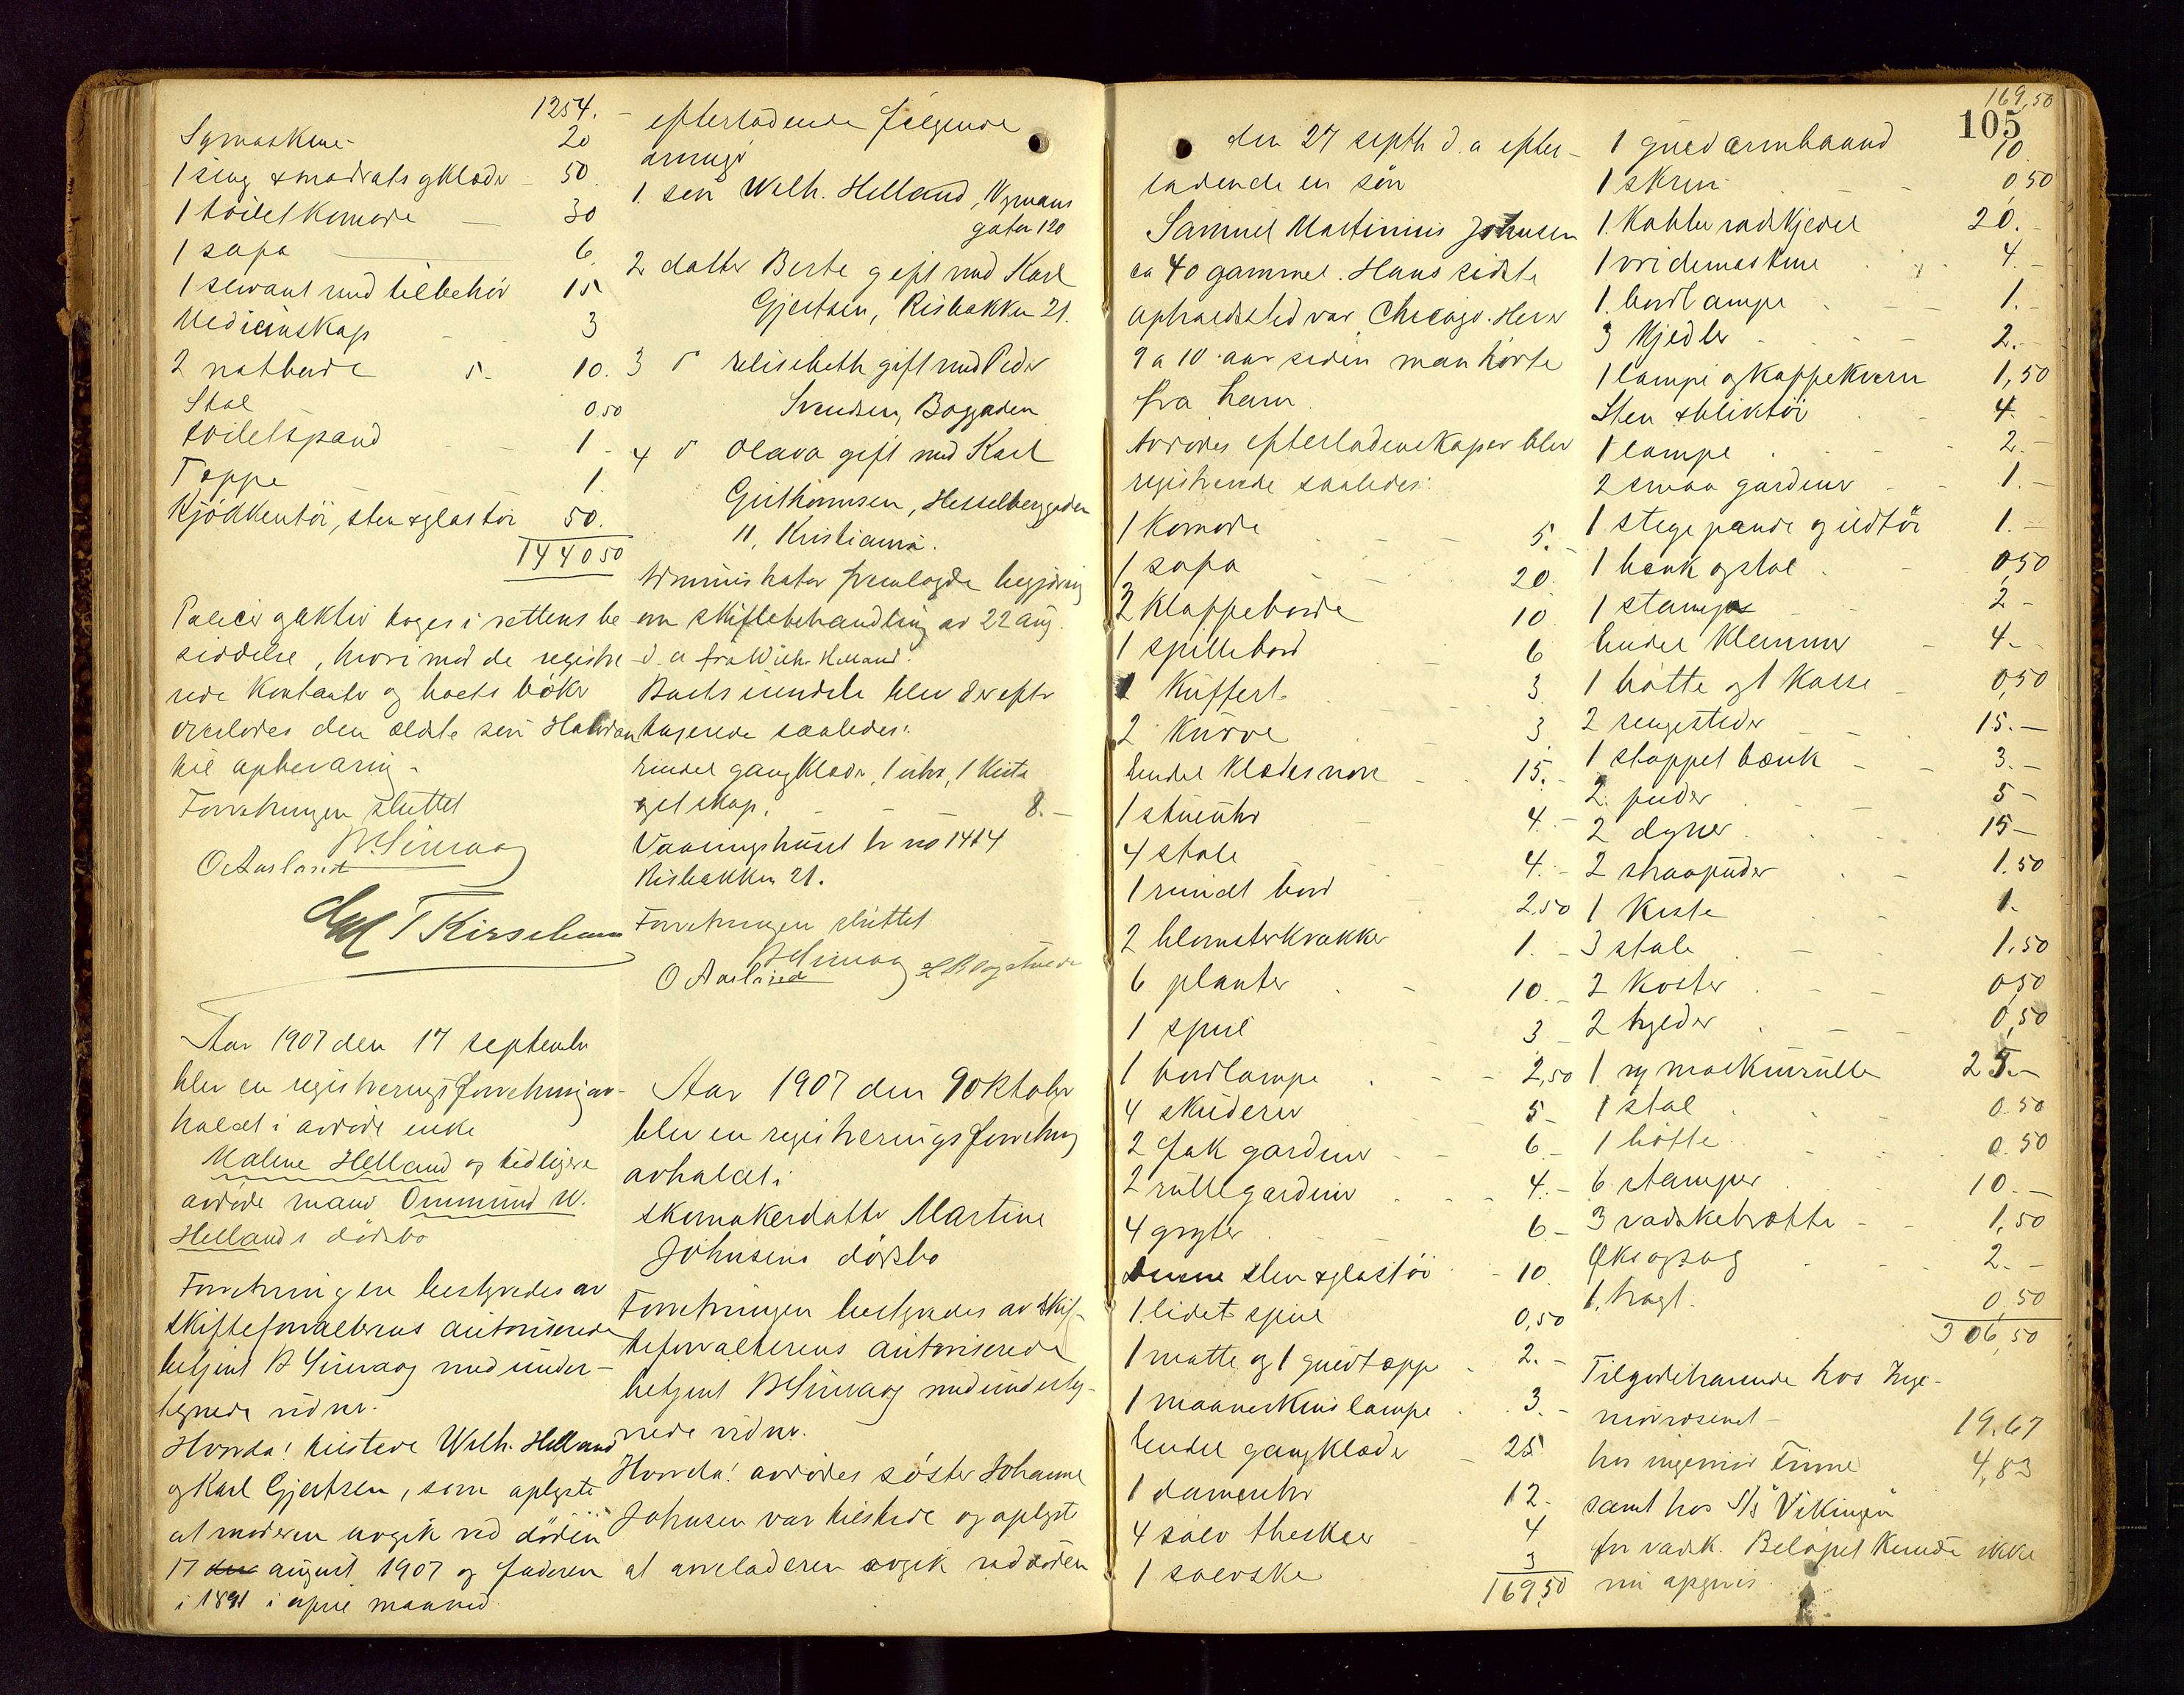 1254.-
Symaskine 20
1 seng & madrats og klæder 50.
1 toiletkomode 30
1 sofa 6.
1 servant med tilbehör 15
Medicinskap 3
2 natborde 5. 10.
Stol 0.50
toiletspand 1.
Teppe 1.
Kjökkentöi, sten & glastöi 50.
1440 50
Policer og aktier toges i rettens be-
siddelse, hvorimod de registre-
rede kontanter og bankbøker
overlodes den ældste sön Halvdan
til opbevaring.
Forretningen sluttet
B. Simaag
O Aasland
T Kirsebom
Aar 1907 den 17 septembr
blev en registreringsforretning av-
holdt i avdöde enke
Malene Helland og tidligere
avdöde mand Ommund W.
Hellands dödsbo
Forretningen bestyredes av
skifteforvalterens autoriserede
betjent B Simaag med under-
tegnede vidner.
Hvorda! tilstede Wilh. Helland
og Karl Gjertsen, som oplyste
at moderen avgik ved döden
17 august 1907 og faderen
i 1891 i april maaned
efterladende følgende
arvinger
1. sön Wilh. Helland, Nymans
gaten 120
2 datter Berte gift med Karl
Gjertsen, Risbakken 21.
3 d Elisebeth gift med Peder
Svendsen, Bøgaden
4 d Olava gift med Karl
Guthormsen, Hesselberggaden
11, Kristiania.
Administrator fremlagde begjæring
om skiftebehandling av 22 aug.
d. a fra Wilh. Helland.
Boets eiendele blev derefter
taxerede saaledes:
Endel gangklæder, 1 uhr, 1 kiste
og et skap. 8.-
Vaaningshuset br no 1414
Risbakken 21.
Forretningen sluttet
B Simaag
O Aasland
Aar 1907 den 9 oktober
blev en registreringsforretning
avholdt i
skomakerdatter Martine
Johnsens dödsbo
Forretningen bestyredes av skif-
teforvalterens autoriserede
betjent B Simaag med underteg-
nede vidner.
Hvorda! avdödes söster Johanne
Johnsen var tilstede og oplyste
at arveladeren avgik ved döden
den 27 septbr d. a efter-
ladende en sön
Samuel Martinius Johnsen
ca 40 gammel. Hans sidste
opholdssted var Chicago. Her er
9 a 10 aar siden man hörte
fra ham.
Avdödes efterladenskaper blev
registrerede saaledes:
1 komode 5.-
1 sofa 20.
2 klappeborde 10
1 spillebord 6
1 kuffert 3.
2 kurve 3
Endel klædesnore 15.-
1 stueuhr 4.-
4 stole 4.-
1 rundt bord 2.50
2 blomsterkrakker 1.-
6 planter 10.-
1 speil 3
1 bordlampe 2,50
4 skilderier 5-
2 fak gardiner 6.-
2 rullegardiner 4.-
4 gryter 6-
Denne sten & glastöi 10
1 lidet speil 0,50
1 matte og 1 gulvtæppe 2.-
1 maaneskinslampe 3.-
Endel gangklæder 25
1 dameuhr 12.
4 sølv theskeer 4
1 sølvske 3
169,50
169,50
105
1 guld armbaand 10.
1 skrin 0,50
1. kobber vadskjedel 20.
1 vridemaskine 4.-
1. bordlampe 1.-
3 kjedler 2.-
1 lampe og kaffekvern 1,50
Sten & bliktöi 4.-
1 lampe 2.-
2 smaa gardiner 1.-
1 stegepande og ildtöi 1.-
1 bænk og stol 0,50
1 stamp 2-
Endel klemmer 4.-
1 bötte og 1 kasse 0,50
2 sengesteder 15.-
1 stoppet bænk 3.-
2 puder 5-
2 dyner 15-
2 straapuder 1.50
1 kiste 1.
3 stole 1.50
2 koster 0,50
2 hylder 0,50
1 ny maskinrulle 25.-
1 stol 0.50
1 bötte 0.50
6 stamper 10.-
3 vadsketrætte 1.50
Øks og sag 2.-
1. tragt 0,50
306,50
Tilgodehavende hos Inge-
niör 19.67
hos ingeniör Finne 4,83
samt hos S/S "Vikingen"
for vadsk. Belöpet kunde ikke
nu opgives.